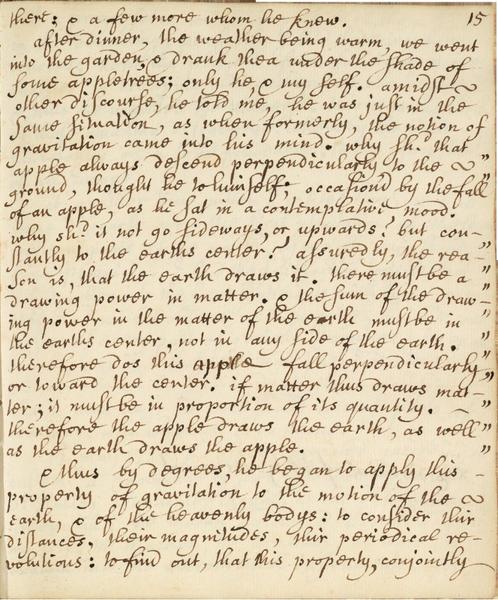 there; & a few more whom he knew. 15
after dinner, the weather being warm, we went
into the garden, & drank thea under the shade of
some appletrees; only he, & my self. amidst
other discourse, he told me, he was just in the
same situation, as when formerly, the notion of
gravitation came into his mind. "why shd that
apple always descend perpendicularly to the "
ground, thought he to himself; occasion'd by the fall
of an apple, as he sat in a contemplative mood.
"why shd it not go sideways, or upwards? but con- "
stantly to the earths center? assuredly, the rea- "
son is, that the earth draws it. there must be a "
drawing power in matter. & the sum of the draw- "
ing power in the matter of the earth must be in "
the earths center, not in any side of the earth. "
therefore dos this apple fall perpendicularly "
or toward the center. if matter thus draws mat- "
ter; it must be in proportion of its quantity. "
therefore the apple draws the earth, as well "
as the earth draws the apple. "
& thus by degrees, he began to apply this
property of gravitation to the motion of the
earth, & of the heavenly bodys: to consider thir
distances, their magnitudes, thir periodical re-
volutions: to find out, that this property, conjointly